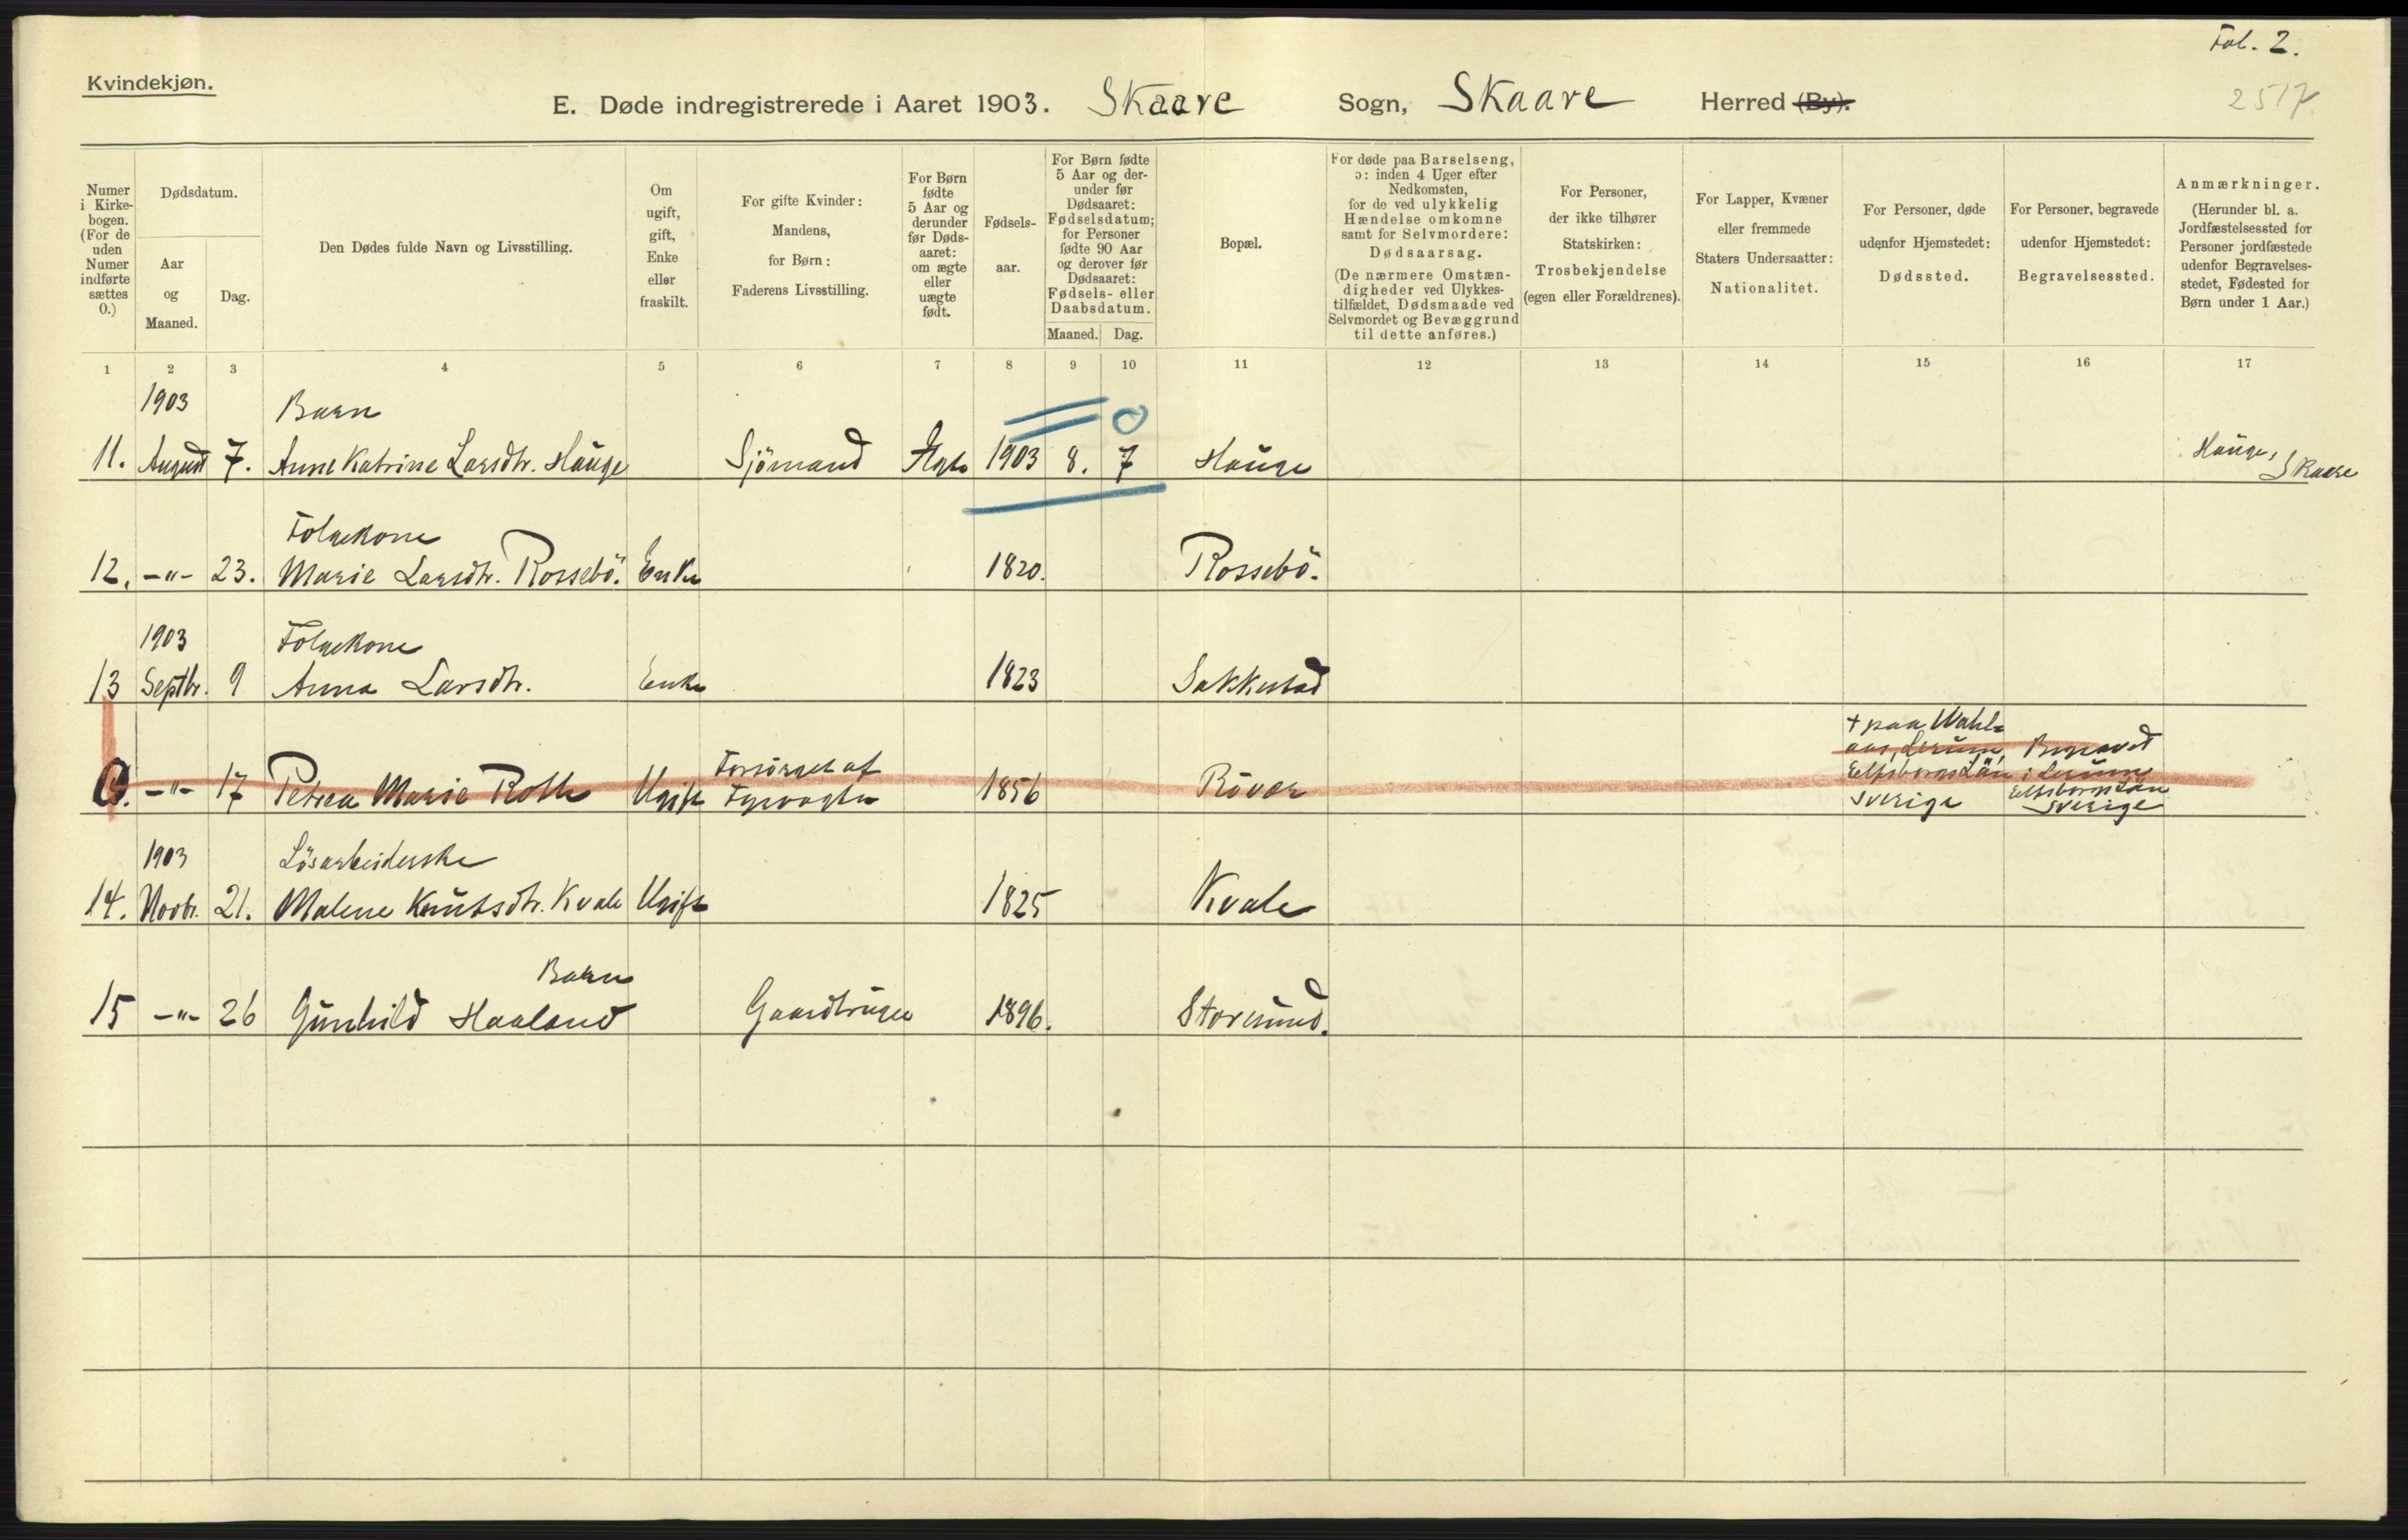 Fol. 2.
Kvindekjøn.
2517
E. Døde indregistrerede i Aaret 1903. Skaare Sogn, Skaare Herred (By).
Numer i Kirkebogen. (For de uden Numer indførte sættes 0.)
Dødsdatum.
Aar og Maaned.
Dag.
Den Dødes fulde Navn og Livsstilling.
Om ugift, gift, Enke eller fraskilt.
For gifte Kvinder: Mandens, for Børn: Faderens Livsstilling.
For Børn fødte 5 Aar og derunder før Dødsaaret: om ægte eller uægte født.
Fødselsaar.
For Børn fødte 5 Aar og derunder før Dødsaaret: Fødselsdatum; for Personer fødte 90 Aar og derover før Dødsaaret: Fødsels- eller Daabsdatum.
Maaned. Dag.
Bopæl.
For døde paa Barselseng, ɔ: inden 4 Uger efter Nedkomsten, for de ved ulykkelig Hændelse omkomne samt for Selvmordere: Dødsaarsag. (De nærmere Omstændigheder ved Ulykkestilfældet, Dødsmaade ved Selvmordet og Bevæggrund til dette anføres.)
For Personer, der ikke tilhører Statskirken: Trosbekjendelse (egen eller Forældrenes).
For Lapper, Kvæner eller fremmede Staters Undersaatter: Nationalitet.
For Personer, døde udenfor Hjemstedet: Dødssted.
For Personer, begravede udenfor Hjemstedet: Begravelsessted.
Anmærkninger. (Herunder bl. a. Jordfæstelsessted for Personer jordfæstede udenfor Begravelsesstedet, Fødested for Børn under 1 Aar.)
1 2 3 4 5 6 7 8 9 10 11 12 13 14 15 16 17
1903 Barn 0
11. August 7. Anne Katrine Larsdtr. Hauge Sjömand Ægte 1903 8. 7 Hauge Hauge, Skaare
Folgekone
12. -"- 23. Marie Larsdtr. Rossebö. Enke 1820. Rossebö.
1903 Folgekone
13 Septbr. 9 Anna Larsdtr. Enke 1823 Sakkestad
0. -"- 17 Petrea Marie Roth Ugift Forsörget af Fyrvogter 1856 Rövær
+ paa Wahls
aas, Lerum,
Elfsborgs Län
Sverige
Begravet
i Lerum
Elfsborgs Län
Sverige
1903 Lösarbeiderske
14. Novbr. 21. Malene Knutsdtr. Kvale Ugift 1825 Kvale
Barn
15 -"- 26 Gunhild Haaland Gaardbruger 1896. Storesund.